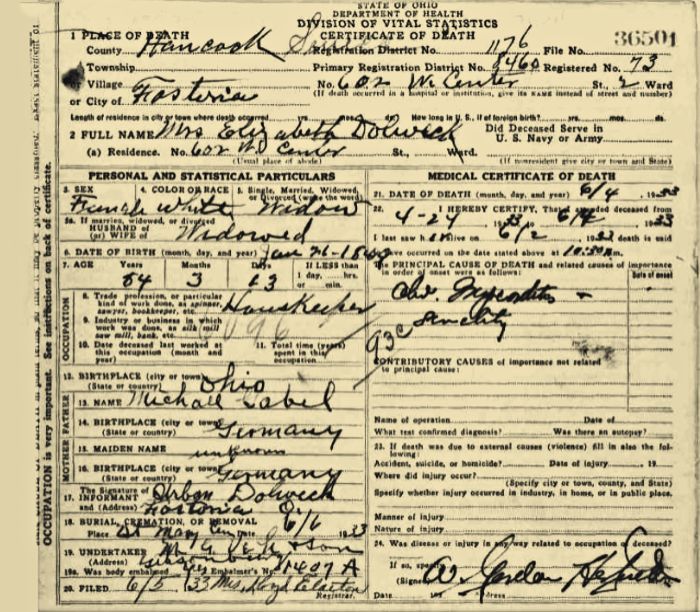 STATE OF OHIO
DEPARTMENT OF HEALTH
DIVISION OF VITAL STATISTICS
CERTIFICATE OF DEATH
1 PLACE OF DEATH
County Hancock Registration District No. 1176 File No. 36501
Township Primary Registration District No. 8460 Registered No. 73
or Village No. 602 W. Center St., 2 Ward
or City of Fostoria (If death occurred in a hospital or institution, give its NAME instead of street and number)
Length of residence in city or town where death occurred yrs. mos. ds. How long in U. S., if of foreign birth? yrs. mos. ds.
2 FULL NAME Mrs Elizabeth Dolweck Did Deceased Serve in
U. S. Navy or Army
(a) Residence. No. 602 W Center St., Ward.
(Usual place of abode) (If nonresident give city or town and State)
PERSONAL AND STATISTICAL PARTICULARS
3. SEX 4. COLOR OR RACE 5. Single, Married, Widowed, or Divorced (write the word)
Female White Widow
5a. If married, widowed, or divorced
HUSBAND of
(or) WIFE of Widowed
6. DATE OF BIRTH (month, day, and year) Jan 26-18
7. AGE Years Months Days If LESS than
1 day, hrs.
or min.
84 3 13
OCCUPATION
8. Trade, profession, or particular kind of work done, as spinner, sawyer, bookkeeper, etc. Houskeeper
9. Industry or business in which work was done, as silk mill saw mill, bank, etc.
6096
10. Date deceased last worked at this occupation (month and year)
11. Total time (years) spent in this occupation
12. BIRTHPLACE (city or town)
(State or country) Ohio
FATHER
13. NAME Michael Gabel
14. BIRTHPLACE (city or town)
(State or country) Germany
MOTHER
15. MAIDEN NAME unknown
16. BIRTHPLACE (city or town)
(State or country) Germany
The Signature of
17. INFORMANT Urban Dolweck
and (Address) Fostoria O.
18. BURIAL, CREMATION, OR REMOVAL
Place St Mary Date 6/6 1933
19. UNDERTAKER & son
(Address)
19a. Was body embalmed yes Embalmer's No. 1407 A
20. FILED 6/5 1933 Mrs,
Registrar.
MEDICAL CERTIFICATE OF DEATH
21. DATE OF DEATH (month, day, and year) 6/4, 1933
22. I HEREBY CERTIFY, That I attended deceased from
4-27 1933 to 6/4 1933
I last saw h alive on 6/2 1933 death is said
to have occurred on the date stated above at 10:30
The PRINCIPAL CAUSE OF DEATH and related causes of importance in order of onset were as follows: Date of onset
Chr. Myocarditis +
Senility
93c
CONTRIBUTORY CAUSES of importance not related to principal cause:
Name of operation Date of
What test confirmed diagnosis? Was there an autopsy?
23. If death was due to external causes (violence) fill in also the following:
Accident, suicide, or homicide? Date of injury 19
Where did injury occur?
(Specify city or town, county, and State)
Specify whether injury occurred in industry, in home, or in public place.
Manner of injury
Nature of injury
24. Was disease or injury in any way related to occupation of deceased?
If so, specify
(Signed) W.
Date Address
OCCUPATION is very important. See instructions on back of certificate.